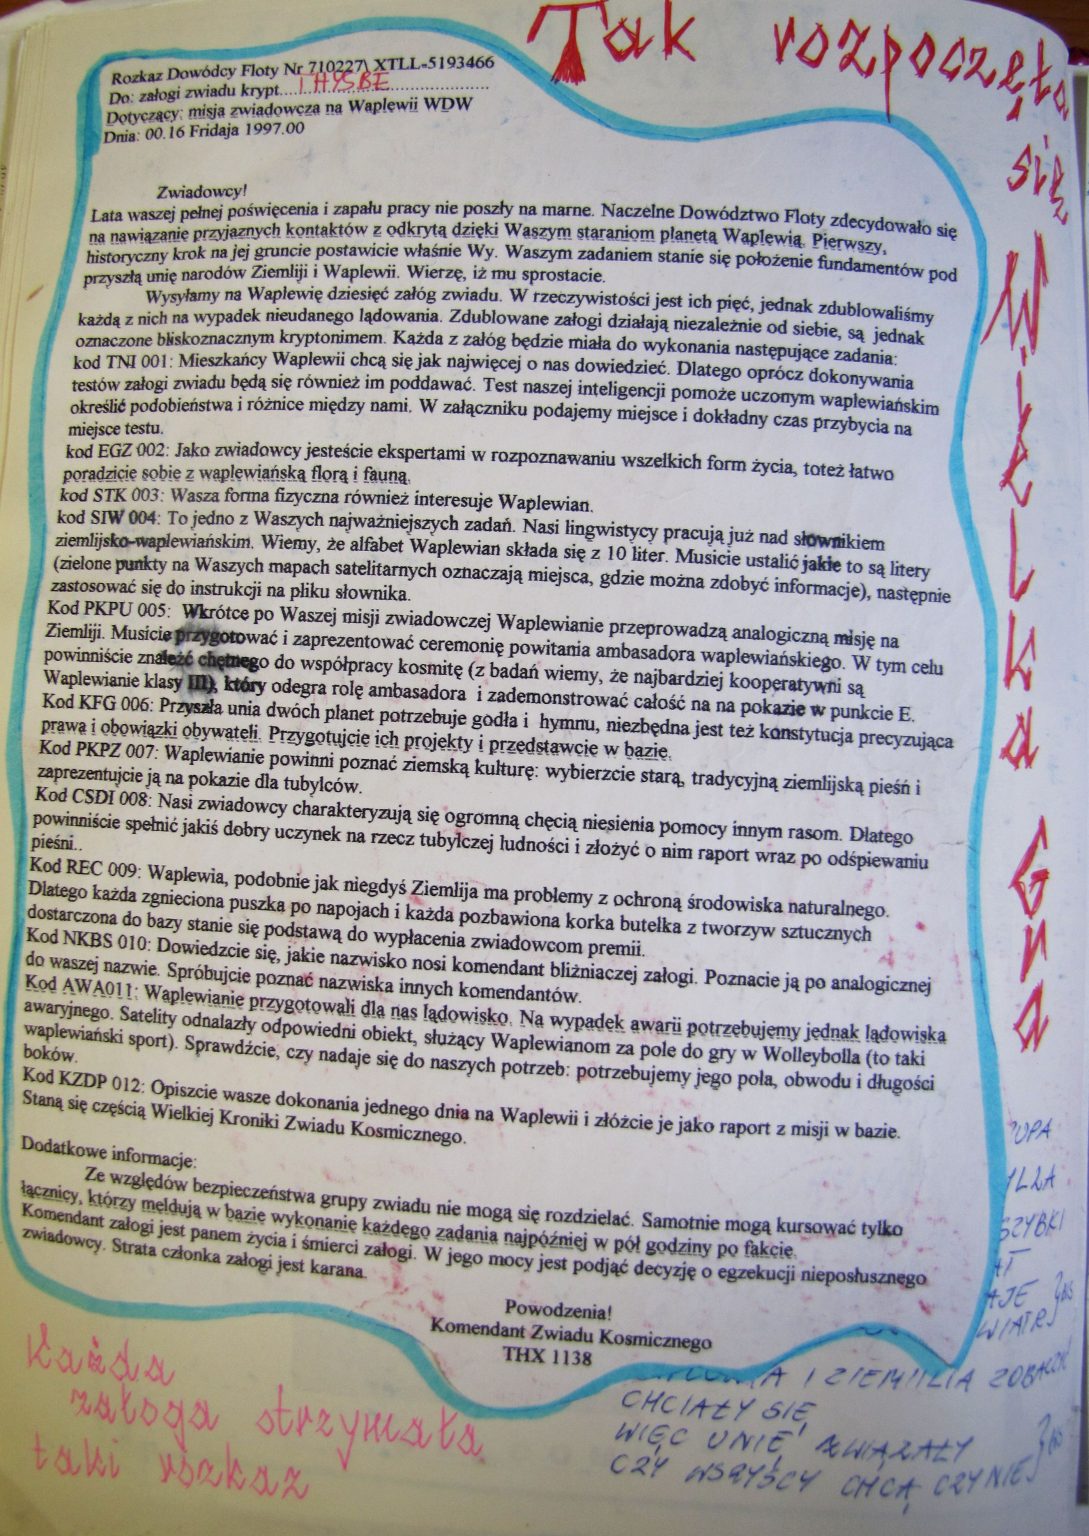 Tak rozpoczęła się Wielka Gra
Rozkaz Dowódcy Floty Nr 710227\ XTLL-5193466
Do: załogi zwiadu krypt....THYSBE....................
Dotyczący: misja zwiadowcza na Waplewii WDW
Dnia: 00.16 Fridaja 1997.00
Zwiadowcy!
Lata waszej pełnej poświęcenia i zapału pracy nie poszły na marne. Naczelne Dowództwo Floty zdecydowało się
na nawiązanie przyjaznych kontaktów z odkrytą dzięki Waszym staraniom planetą Waplewią. Pierwszy,
historyczny krok na jej gruncie postawicie właśnie Wy. Waszym zadaniem stanie się położenie fundamentów pod
przyszłą unię narodów Ziemliji i Waplewii. Wierzę, iż mu sprostacie.
Wysyłamy na Waplewię dziesięć załóg zwiadu. W rzeczywistości jest ich pięć, jednak zdublowaliśmy
każdą z nich na wypadek nieudanego lądowania. Zdublowane załogi działają niezależnie od siebie, są jednak
oznaczone bliskoznacznym kryptonimem. Każda z załóg będzie miała do wykonania następujące zadania:
kod TNI 001: Mieszkańcy Waplewii chcą się jak najwięcej o nas dowiedzieć. Dlatego oprócz dokonywania
testów załogi zwiadu będą się również im poddawać. Test naszej inteligencji pomoże uczonym waplewiańskim
określić podobieństwa i różnice między nami. W załączniku podajemy miejsce i dokładny czas przybycia na
miejsce testu.
kod EGZ 002: Jako zwiadowcy jesteście ekspertami w rozpoznawaniu wszelkich form życia, toteż łatwo
poradzicie sobie z waplewiańską florą i fauną.
kod STK 003: Wasza forma fizyczna również interesuje Waplewian.
kod SIW 004: To jedno z Waszych najważniejszych zadań. Nasi lingwistycy pracują już nad słownikiem
ziemlijsko-waplewiańskim. Wiemy, że alfabet Waplewian składa się z 10 liter. Musicie ustalić jakie to są litery
(zielone punkty na Waszych mapach satelitarnych oznaczają miejsca, gdzie można zdobyć informacje), następnie
zastosować się do instrukcji na pliku słownika.
Kod PKPU 005: Wkrótce po Waszej misji zwiadowczej Waplewianie przeprowadzą analogiczną misję na
Ziemliji. Musicie przygotować i zaprezentować ceremonię powitania ambasadora waplewiańskiego. W tym celu
powinniście znaleźć chętnego do współpracy kosmitę (z badań wiemy, że najbardziej kooperatywni są
Waplewianie klasy III), który odegra rolę ambasadora i zademonstrować całość na na pokazie w punkcie E.
Kod KFG 006: Przyszła unia dwóch planet potrzebuje godła i hymnu, niezbędna jest też konstytucja precyzująca
prawa i obowiązki obywateli. Przygotujcie ich projekty i przedstawcie w bazie.
Kod PKPZ 007: Waplewianie powinni poznać ziemską kulturę: wybierzcie starą, tradycyjną ziemlijską pieśń i
zaprezentujcie ją na pokazie dla tubylców.
Kod CSDI 008: Nasi zwiadowcy charakteryzują się ogromną chęcią niesienia pomocy innym rasom. Dlatego
powinniście spełnić jakiś dobry uczynek na rzecz tubylczej ludności i złożyć o nim raport wraz po odśpiewaniu
pieśni..
Kod REC 009: Waplewia, podobnie jak niegdyś Ziemlija ma problemy z ochroną środowiska naturalnego.
Dlatego każda zgnieciona puszka po napojach i każda pozbawiona korka butelka z tworzyw sztucznych
dostarczona do bazy stanie się podstawą do wypłacenia zwiadowcom premii.
Kod NKBS 010: Dowiedzcie się, jakie nazwisko nosi komendant bliźniaczej załogi. Poznacie ją po analogicznej
do waszej nazwie. Spróbujcie poznać nazwiska innych komendantów.
Kod AWA011: Waplewianie przygotowali dla nas lądowisko. Na wypadek awarii potrzebujemy jednak lądowiska
awaryjnego. Satelity odnalazły odpowiedni obiekt, służący Waplewianom za pole do gry w Wolleybolla (to taki
waplewiański sport). Sprawdźcie, czy nadaje się do naszych potrzeb: potrzebujemy jego pola, obwodu i długości
boków.
Kod KZDP 012: Opiszcie wasze dokonania jednego dnia na Waplewii i złóżcie je jako raport z misji w bazie.
Staną się częścią Wielkiej Kroniki Zwiadu Kosmicznego.
Dodatkowe informacje:
Ze względów bezpieczeństwa grupy zwiadu nie mogą się rozdzielać. Samotnie mogą kursować tylko
łącznicy, którzy meldują w bazie wykonanie każdego zadania najpóźniej w pół godziny po fakcie.
Komendant załogi jest panem życia i śmierci załogi. W jego mocy jest podjąć decyzję o egzekucji nieposłusznego
zwiadowcy. Strata członka załogi jest karana.
Powodzenia!
Komendant Zwiadu Kosmicznego
THX 1138
Każda
załoga otrzymała
taki rozkaz
SZYBKI
AJE
WIATR
A I ZIEMIILIA ZOBACZYĆ
CHCIAŁY SIĘ
WIĘC UNIĘ ZWIĄZAŁY
CZY WSZYŚCY CHCĄ CZY NIE